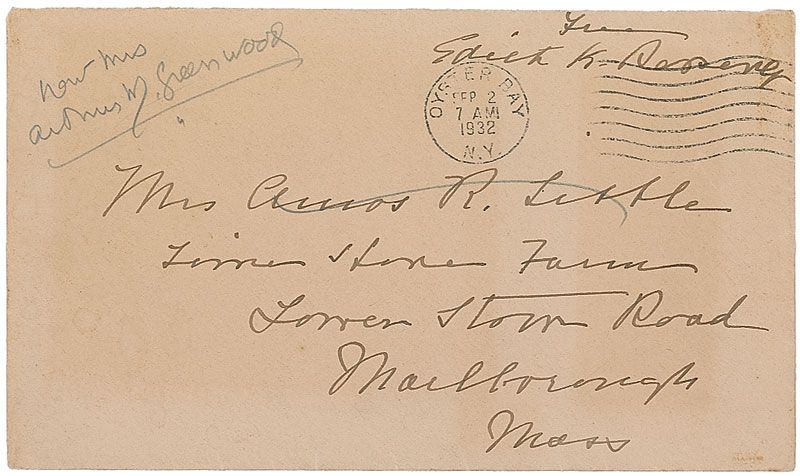 Free
Edith K. Roosevelt
now Mrs
Arthur M. Greenwood
OYSTER BAY
SEP 2
7 AM
1932
N.Y.
Mrs Amos R. Little
Time Stone Farm
Lower Stow Road
Marlborough
Mass